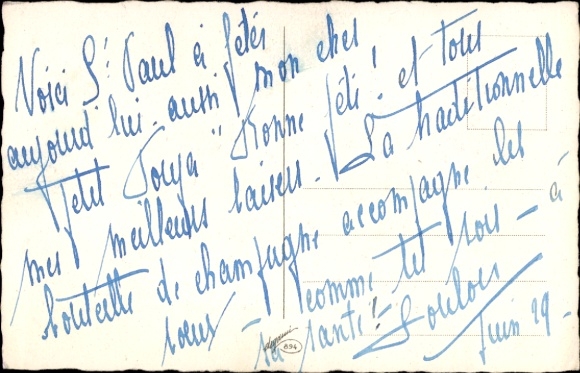 Voici St Paul à fêter
aujourd'hui - aussi mon cher
Petit "Bonne fête! et tous
mes meilleurs baisers - La traditionnelle
bouteille de champagne accompagne les
vœux - comme tu bois - à
ta santé!
Juin 29 -
694